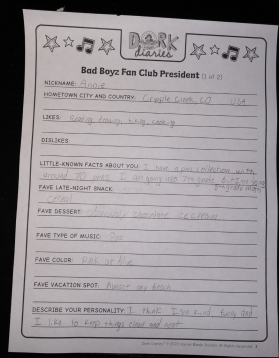 DORK
diaries
Bad Boyz Fan Club President (1 of 2)
NICKNAME: Annie
HOMETOWN CITY AND COUNTRY: Cripple Creek, CO USA
LIKES: Reading, drawing, cooking
DISLIKES:
LITTLE-KNOWN FACTS ABOUT YOU: I have a pen collection with
around 70 pens. I am going into 7th grade but I'm doing
8th grade math
FAVE LATE-NIGHT SNACK:
cereal
FAVE DESSERT: chocolate ice cream
FAVE TYPE OF MUSIC: Pop
FAVE COLOR: Pink or Blue
FAVE VACATION SPOT: any beach
DESCRIBE YOUR PERSONALITY: I think I'm kind, funny and
I like to keep things clean and neat